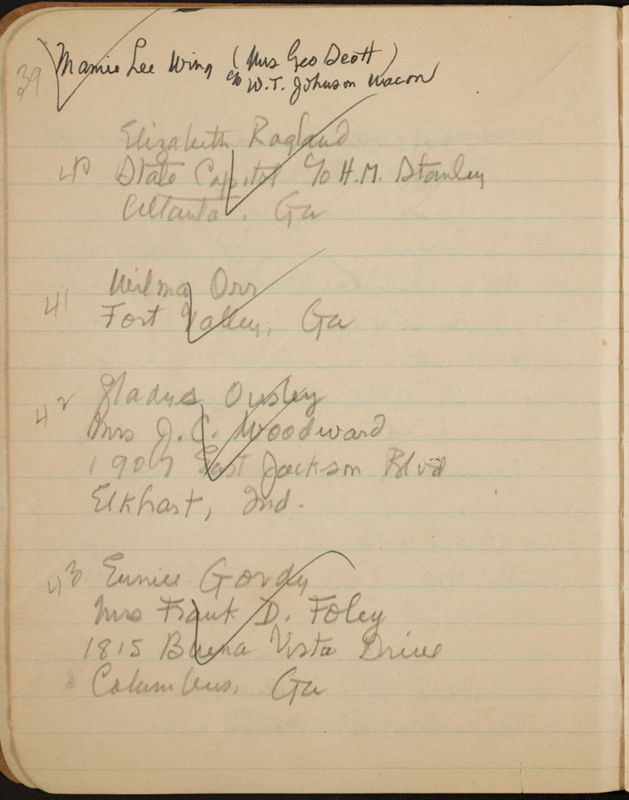 39 Mamie Lee Wing (Mrs Geo Scott)
c/o W.T. Johnson Macon
Elizabeth Ragland
40 State Capitol c/o H.M. Stanley
Atlanta, Ga
41 Wilma Orr
Fort Valley, Ga
42 Gladys Ousley
Mrs J.C. Woodward
1907 East Jackson Blvd
Elkhart, Ind.
43 Eunice Gordy
Mrs Frank D. Foley
1815 Buena Vista Drive
Columbus, Ga